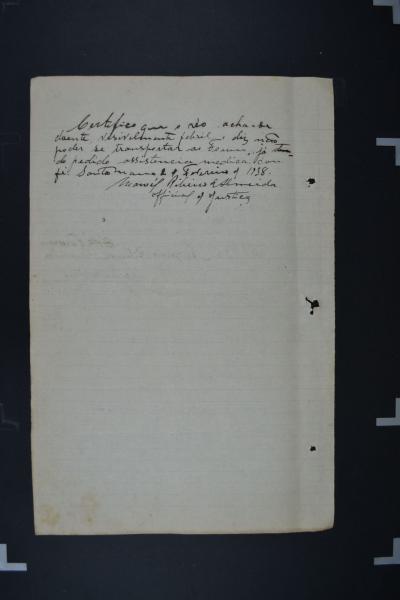 Certifico que o réo acha-se
doente visivelmente febril e diz não
poder se transportar ao Forum, já ten-
do pedido assistencia medica. Dou
fé. Santo de Fevereiro de 1938.
Ribeiro de Almeida
Official de Justiça